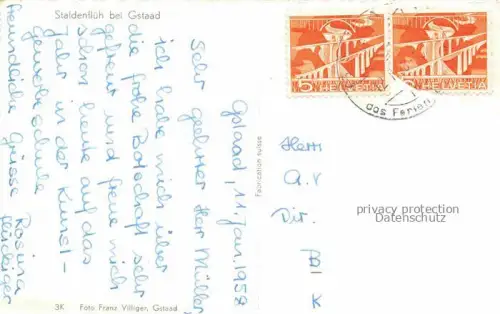 Staldenflüh bei Gstaad
Gstaad, 11. Jan. 1958
Sehr geehrter Herr Müller,
ich habe mich über
die frohe Botschaft sehr
gefreut und freue mich
schon heute auf das
Jahr in der Kunst-
gewerbeschule.
Freundliche Grüsse
Rosina
3K Foto Franz Villiger, Gstaad
Fabrication suisse
5 HELVETIA
5 HELVETIA
das Ferien
Herrn
A.V
Dir.
B
K
privacy protection
Datenschutz